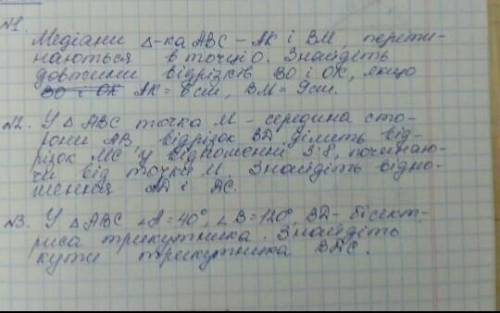 №1.
Медіани Δ-ка ABC - AK і BM перети-
наються в точці O. Знайдіть
довжини відрізків BO і OK, якщо
BO і OK AK = 6см, BM = 9см.
№2. У Δ ABC точка M - середина сто-
рони AB, відрізок BD ділить від-
різок MC у відношенні 3:8, починаю-
чи від точки M. Знайдіть відно-
шення AD і DC.
№3. У Δ ABC ∠A = 40°, ∠B = 120°, BD - бісект-
риса трикутника. Знайдіть
кути трикутника BDC.